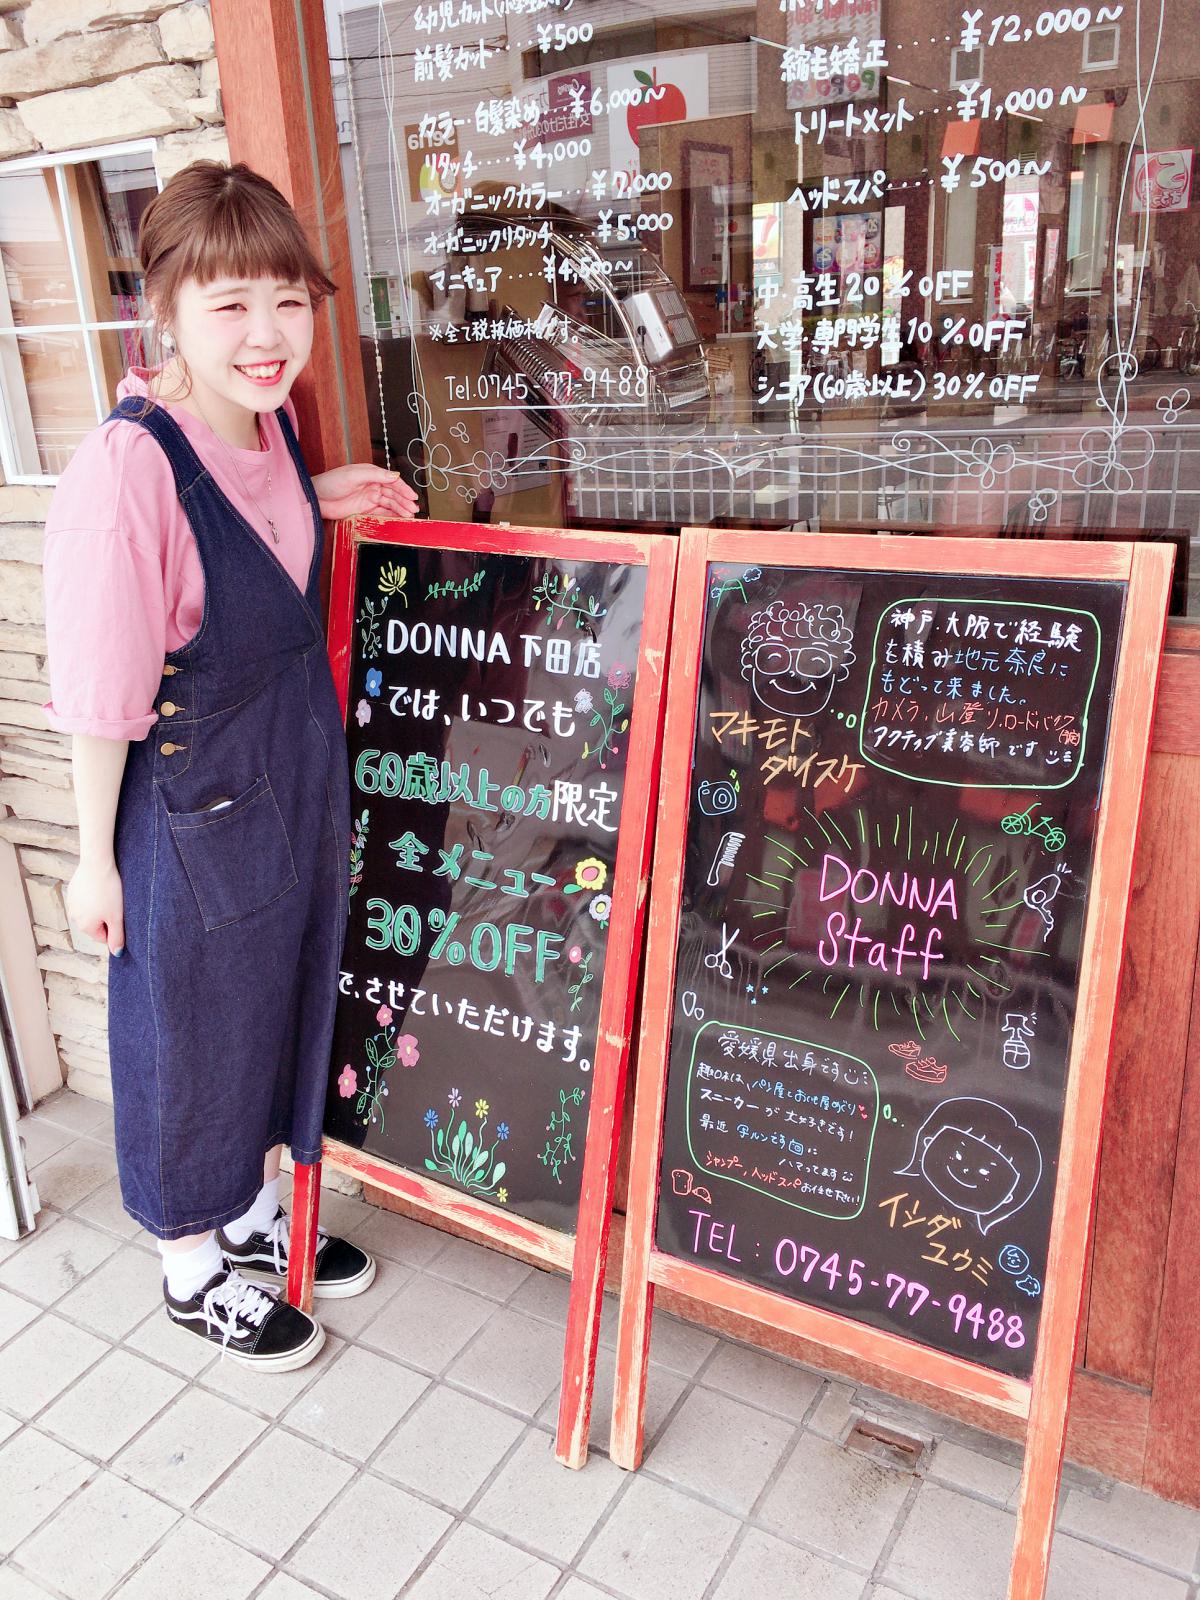 幼児カット(小学生以下)
前髪カット‥‥¥500
カラー・白髪染め‥¥6,000〜
リタッチ‥‥¥4,000
オーガニックカラー‥¥7,000
オーガニックリタッチ‥¥5,000
マニキュア‥‥¥4,500〜
※全て税抜価格です。
Tel.0745-77-9488
¥12,000〜
縮毛矯正
トリートメント‥¥1,000〜
ヘッドスパ‥‥¥500〜
中・高生20%OFF
大学・専門学生10%OFF
シニア(60歳以上)30%OFF
DONNA下田店
では、いつでも
60歳以上の方限定
全メニュー
30%OFF
で、させていただけます。
神戸、大阪で経験
を積み地元奈良に
もどって来ました。
カメラ、山登り、ロードバイク
アクティブ美容師です
マキモト
ダイスケ
DONNA
Staff
愛媛県出身です
趣味は、パン屋とお花屋めぐり
スニーカーが大好きです!
最近
ハマってます
シャンプー、ヘッドスパお任せ下さい!
イシダ
ユウミ
TEL:0745-77-9488